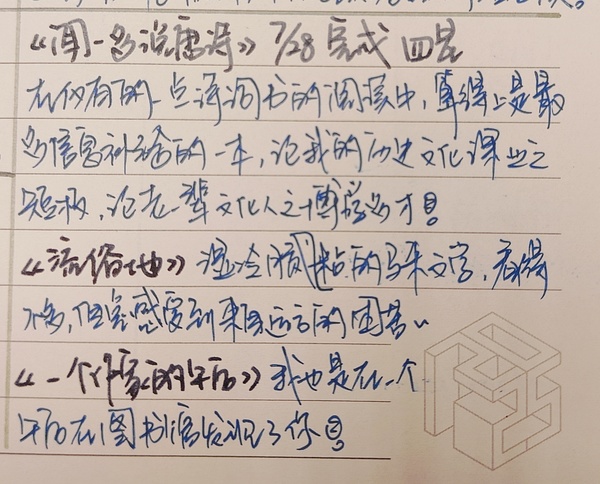 《闻一多说唐诗》 7/28 完成 四星
在仅有的一点诗词书的阅读中,算得上是最
多信息补给的一本,论我的历史文化课业之
短板,论老一辈文化人之博学多才!
《流俗地》 湿冷腻粘的马来文字,看得
不多,但完感受到来自远方的困苦~
《一个作家的午后》 我也是在一个
午后在图书馆发现了你!